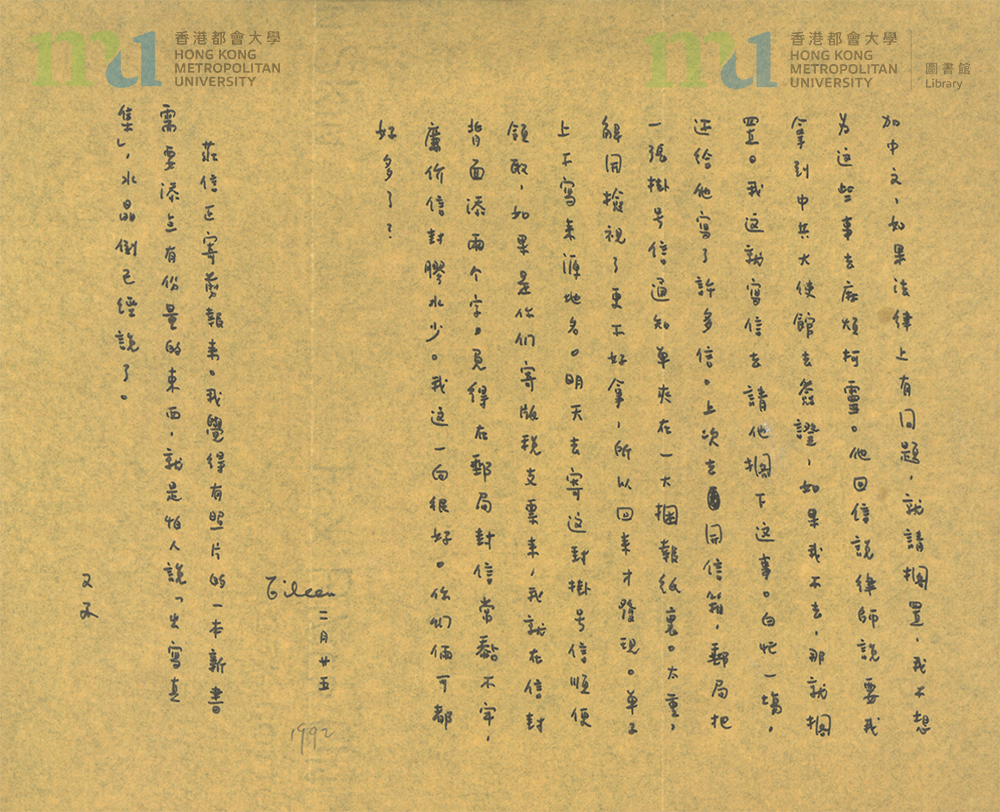 香港都會大學
HONG KONG
METROPOLITAN
UNIVERSITY
香港都會大學
HONG KONG
METROPOLITAN
UNIVERSITY
圖書館
Library
加中文,如果法律上有问题,就請擱置,我不想
为这些事去麻煩柯靈。他回信說律師說要我
拿到中共大使館去簽證,如果我不去,那就擱
置。我这就寫信去請他擱下这事。白忙一場,
还給他寫了許多信。上次去開信箱,郵局把
一張掛号信通知單夾在一大捆報紙裏。太重,
解開檢視了更不好拿,所以回來才發現。單子
上不寫來源地名。明天去寄这封掛号信順便
領取,如果是你们寄版稅支票来,我就在信封
背面添兩个字。覓得在郵局封信常黏不牢,
廉价信封膠水少。我这一向很好。你们倆可都
好多了?
Eileen
二月廿五
1992
莊信正寄剪報来。我覺得有照片的一本新書
需要添点有份量的東西,就是怕人說「出寫真
集」,水晶倒已經說了。
又及